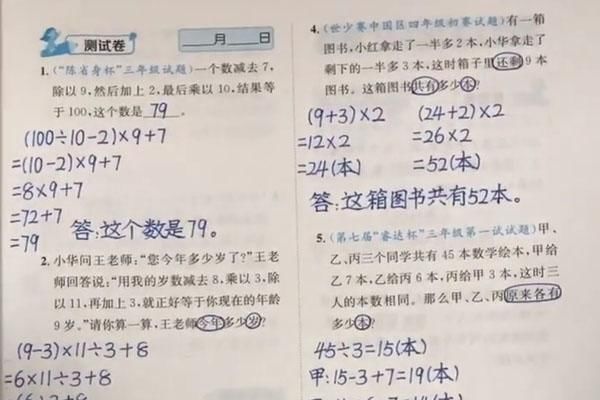 测试卷
____月____日
1.(“陈省身杯”三年级试题)一个数减去7,
除以9,然后加上2,最后乘以10,结果等
于100,这个数是 79 。
(100÷10-2)×9+7
=(10-2)×9+7
=8×9+7
=72+7
=79
答:这个数是79。
2.小华问王老师:“您今年多少岁了?”王老
师回答说:“用我的岁数减去8,乘以3,除
以11,再加上3,就正好等于你现在的年龄
9岁。”请你算一算,王老师今年多少岁?
(9-3)×11÷3+8
=6×11÷3+8
4.(世少赛中国区四年级初赛试题)有一箱
图书,小红拿走了一半多2本,小华拿走了
剩下的一半多3本,这时箱子里还剩9本
图书。这箱图书共有多少本?
(9+3)×2
=12×2
=24(本)
(24+2)×2
=26×2
=52(本)
答:这箱图书共有52本。
5.(第七届“睿达杯”三年级第一试试题)甲、
乙、丙三个同学共有45本数学绘本,甲给
乙7本,乙给丙6本,丙给甲3本,这时三
人的本数相同。那么甲、乙、丙原来各有
多少本?
45÷3=15(本)
甲:15-3+7=19(本)